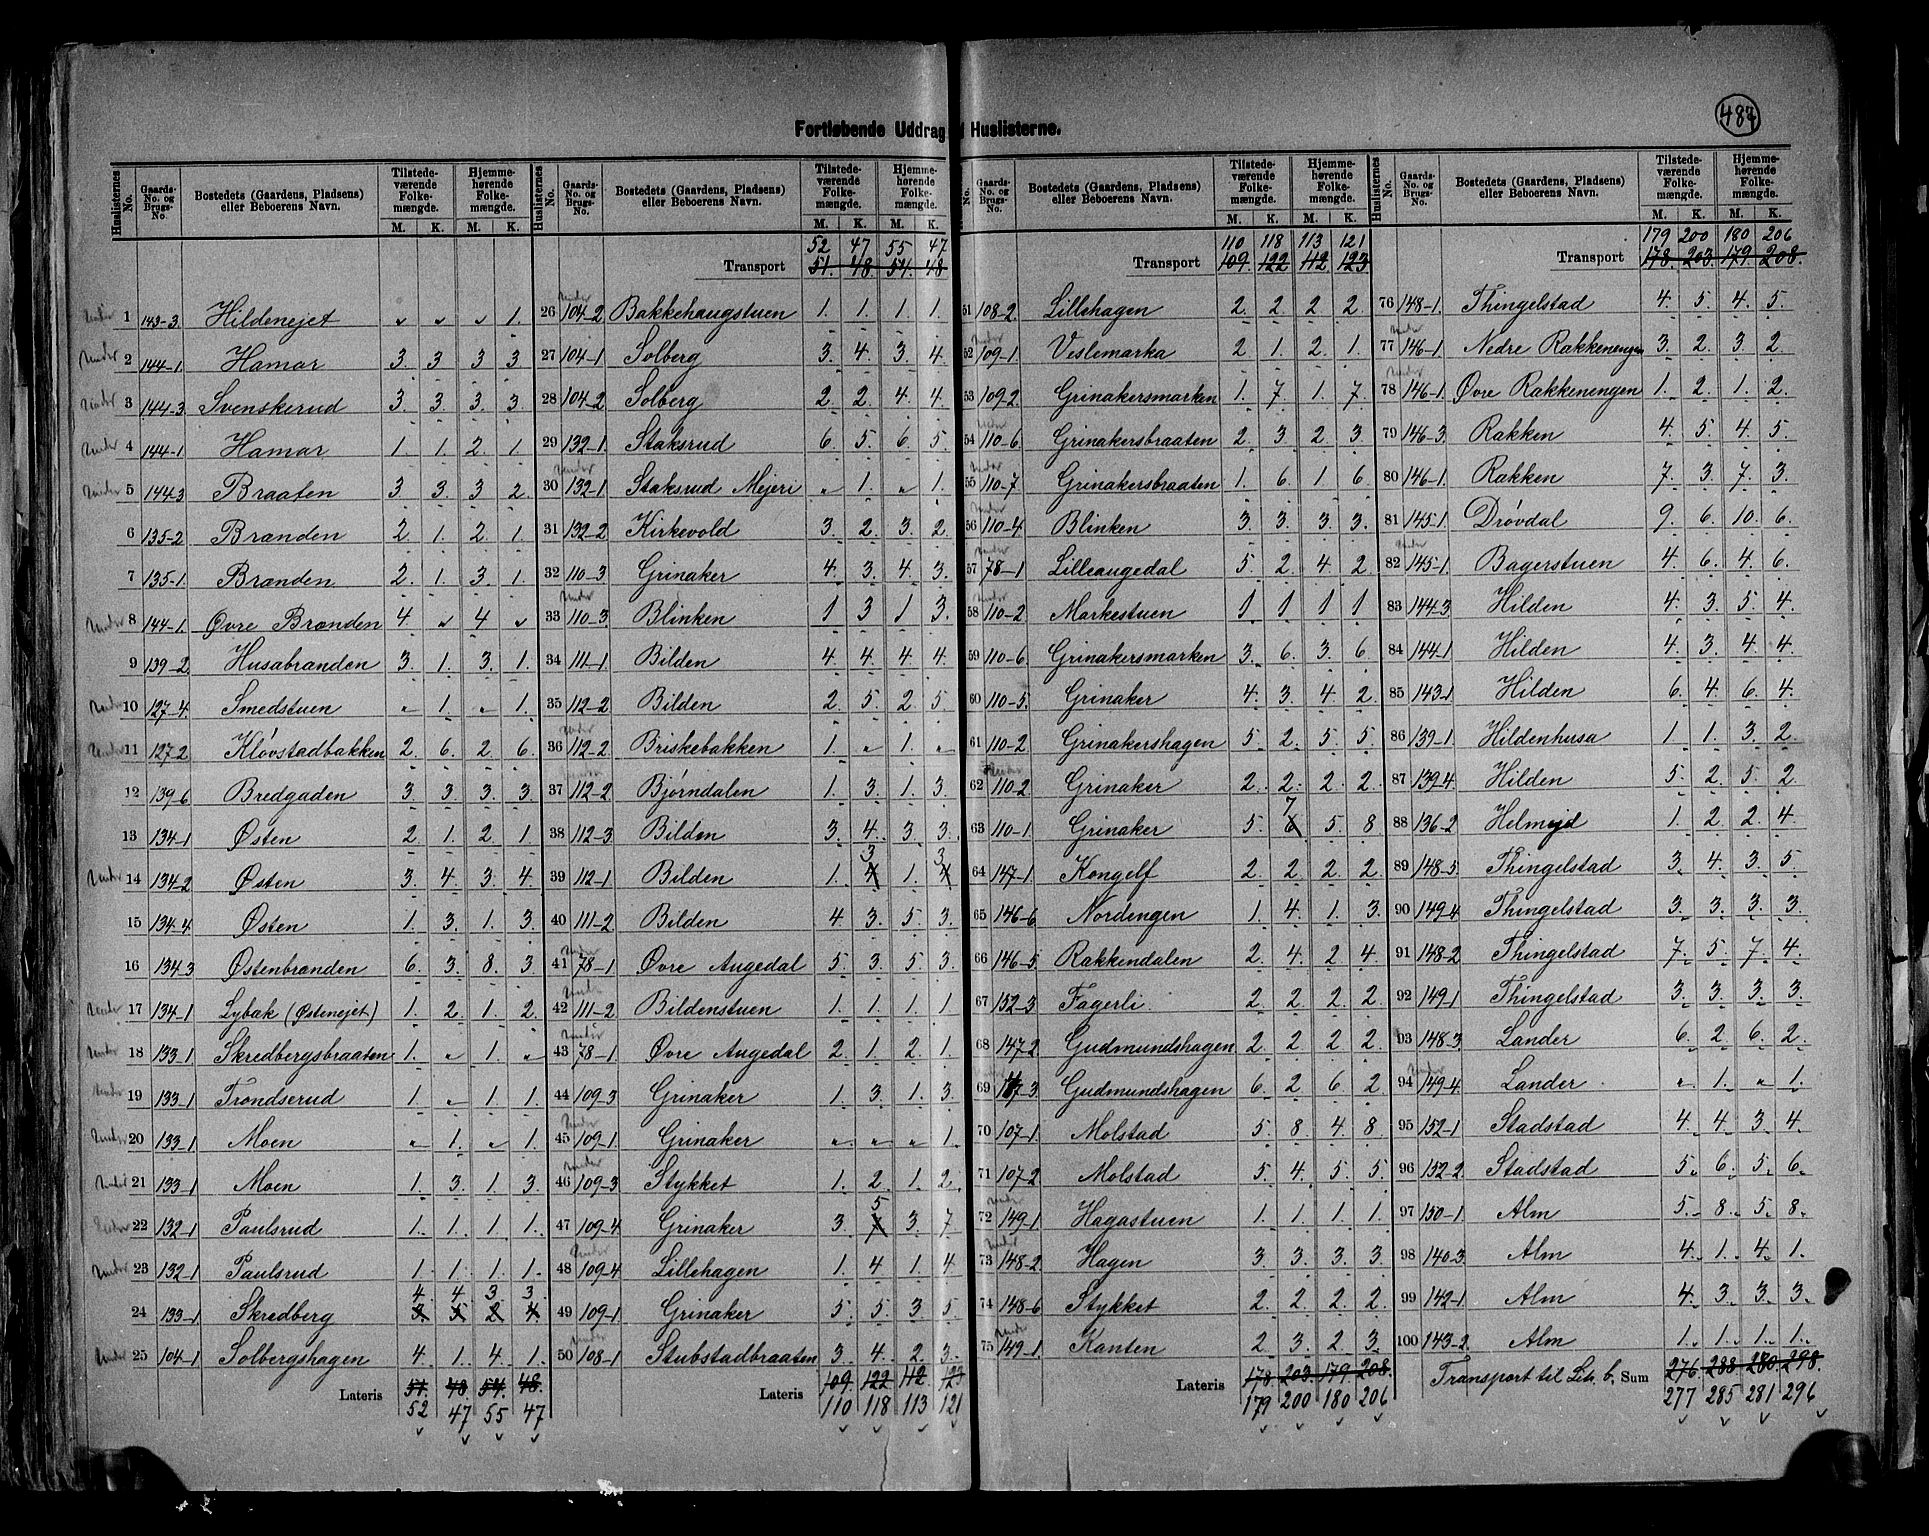 487
Fortløbende Uddrag af Huslisterne.
Huslisternes No. | Gaards-No. og Brugs-No. | Bostedets (Gaardens, Pladsens) eller Beboerens Navn. | Tilstedeværende Folkemængde. M. K. | Hjemmehørende Folkemængde. M. K.
under 1 143-3. Hildenejet „ „ „ 1.
under 2 144-1. Hamar 3. 3 3 3
under 3 144-3 Svenskerud 3. 3. 3. 3.
under 4 144-1 Hamar 1. 1. 2. 1.
under 5 144-3 Braaten 3. 3. 3 2.
6 135-2 Brænden 2. 1. 2. 1.
7 135-1. Brænden 2. 1. 3. 1.
under 8 144-1. Øvre Brænden 4. „ 4. „
9 139-2. Husabrænden 3. 1. 3. 1.
under 10 127-4. Smedstuen „ 1. „ 1.
under 11 127-2 Kløvstadbakken 2. 6. 2. 6.
12 139-6 Bredgaden 3. 3. 3. 3.
13 134-1 Østen 2. 1. 2. 1
under 14 134-2 Østen 3. 4. 3. 4.
15 134-4. Østen 1. 3. 1. 3.
16 134-3 Østenbrænden 6. 3. 8. 3
under 17 134-1 Lybæk (Østenejet) 1. 2. 1. 2.
under 18 133-1 Skredbergsbraaten 1. „ 1. „
under 19 133-1 Trondserud 1. „ 1. 1.
under 20 133-1 Moen „ 1. „ 1.
under 21 133-1 Moen 1. 3. 1. 3.
under 22 132-1 Paulsrud 1. 1. 1. 1.
under 23 132-1 Paulsrud 1. 1. 1. 1.
4. 4. 3. 3.
24 133-1 Skredberg 3. 5 2 4
under 25 104-1 Solbergshagen 4. 1. 4. 1.
Lateris 51. 48. 54. 48.
52 47 55 47
52 47 55 47
Transport 51. 48. 54. 48
under 26 104-2 Bakkehaugstuen 1. 1. 1. 1.
27 104-1 Solberg 3. 4. 3. 4.
28 104-2 Solberg 2. 2. 4. 4.
29 132-1. Staksrud 6. 5. 6. 5
under 30 132-1 Staksrud Mejeri „ 1. „ 1.
31 132-2 Kirkevold 3. 2. 3. 2.
32 110-3 Grinaker 4. 3. 4. 3.
under 33 110-3. Blinken 1 3 1 3.
34 111-1 Bilden 4. 4. 4. 4
35 112-2 Bilden 2. 5. 2. 5
under 36 112-2. Briskebakken 1. „ 1. „
under 37 112-2 Bjørndalen 1. 3. 1. 3.
38 112-3 Bilden 3. 4. 3. 3.
3 3
39 112-1 Bilden 1. 4 1. 4
40 111-2 Bilden 4. 3. 5. 3.
under 41 78-1 Øvre Augedal 5. 3. 5. 3.
under 42 111-2 Bildenstuen 1. 1. 1. 1
under 43 78-1. Øvre Augedal 2. 1. 2. 1.
44 109-3 Grinaker 1. 3. 1. 3.
under 45 109-1. Grinaker „ „ „ 1.
under 46 109-3 Stykket 1. 2 1. 2.
5
47 109-4 Grinaker 3. 7 3. 7
under 48 109-4 Lillehagen 1. 4 1. 4
49 109-1 Grinaker 5. 5. 3. 5
under 50 108-1 Stubstadbraaten 3. 4. 2. 3.
Lateris 109. 122 112. 123
110 118 113 121
110 118 113 121
Transport 109. 122 112. 123
51 108-2. Lillehagen 2. 2. 2. 2.
under 52 109-1. Veslemarka 2 1. 2. 1.
53 109-2. Grinakersmarken 1. 7. 1. 7.
under 54 110-6 Grinakersbraaten 2. 3 2. 3.
under 55 110-7 Grinakersbraaten 1. 6. 1 6
under 56 110-4 Blinken 3. 3. 3. 3.
under 57 78-1 Lilleaugedal 5. 2. 4. 2
under 58 110-2 Markestuen 1 1 1 1
59 110-6 Grinakersmarken 3. 6. 3. 6
60 110-5. Grinaker 4. 3. 4. 2.
61 110-2 Grinakershagen 5. 2. 5. 5.
under 62 110-2 Grinaker 2. 2. 2. 2.
7
63 110-1 Grinaker 5. 6 5. 8
64 147-1 Kongelf 2. 2. 2. 2.
65 146-6 Nordengen 1. 4. 1. 3.
66 146-5 Rakkendalen 2. 4. 2. 4.
67 152-3 Fagerli 2. 2. 2. 2.
68 147-2 Gudmundshagen 2. 2. 2. 2.
69 147-3 Gudmundshagen 6. 2. 6. 2.
70 107-1. Molstad 5. 8. 4. 8.
71 107-2 Molstad 5. 4. 5. 5.
under 72 149-1 Hagastuen 1. 1. 1. 1.
under 73 148-2. Hagen 3. 3. 3. 3.
74 148-6 Stykket 2. 2. 2. 2.
under 75 149-1 Kanten 2. 3. 2. 3.
Lateris 178. 203. 179. 208.
179 200 180 206
179 200 180 206
Transport 178. 203. 179. 208.
76 148-1. Thingelstad 4. 5. 4. 5.
under 77 146-1. Nedre Rakkenengen 3. 2. 3. 2.
under 78 146-1. Øvre Rakkenengen 1. 2. 1. 2.
79 146-3. Rakken 4. 5. 4. 5.
80 146-1. Rakken 7. 3. 7. 3.
81 145-1. Drøvdal 9. 6. 10. 6.
under 82 145-1. Bagerstuen 4. 6. 4. 6.
83 144-3. Hilden 4. 3. 5. 4.
84 144-1 Hilden 4. 3. 4. 4.
85 143-1. Hilden 6. 4. 6. 4.
86 139-1 Hildenhusa 1 1. 3. 2.
87 139-4. Hilden 5. 2. 5. 2.
88 136-2 Helmejd 1. 2. 2. 4.
89 148-5 Thingelstad 3. 4. 3. 5.
90 149-4 Thingelstad 3. 3. 3. 3.
91 148-2 Thingelstad 7. 5. 7. 4.
92 149-1 Thingelstad 3. 3. 3. 3.
93 148-3. Lander 6. 2. 6. 2.
under 94 149-4. Lander „ 1. „ 1.
95 152-1. Stadstad 4. 4. 3. 4.
96 152-2. Stadstad 5. 6. 5. 6.
97 150-1. Alm 5. 8. 5. 8.
98 140-3. Alm 4. 1. 4. 1.
99 142-1. Alm 4. 3. 3. 3.
100 143-2. Alm 1. 1. 1. 1.
Transport til Litr. b, Sum 276. 288. 280. 298.
277 285 281 296